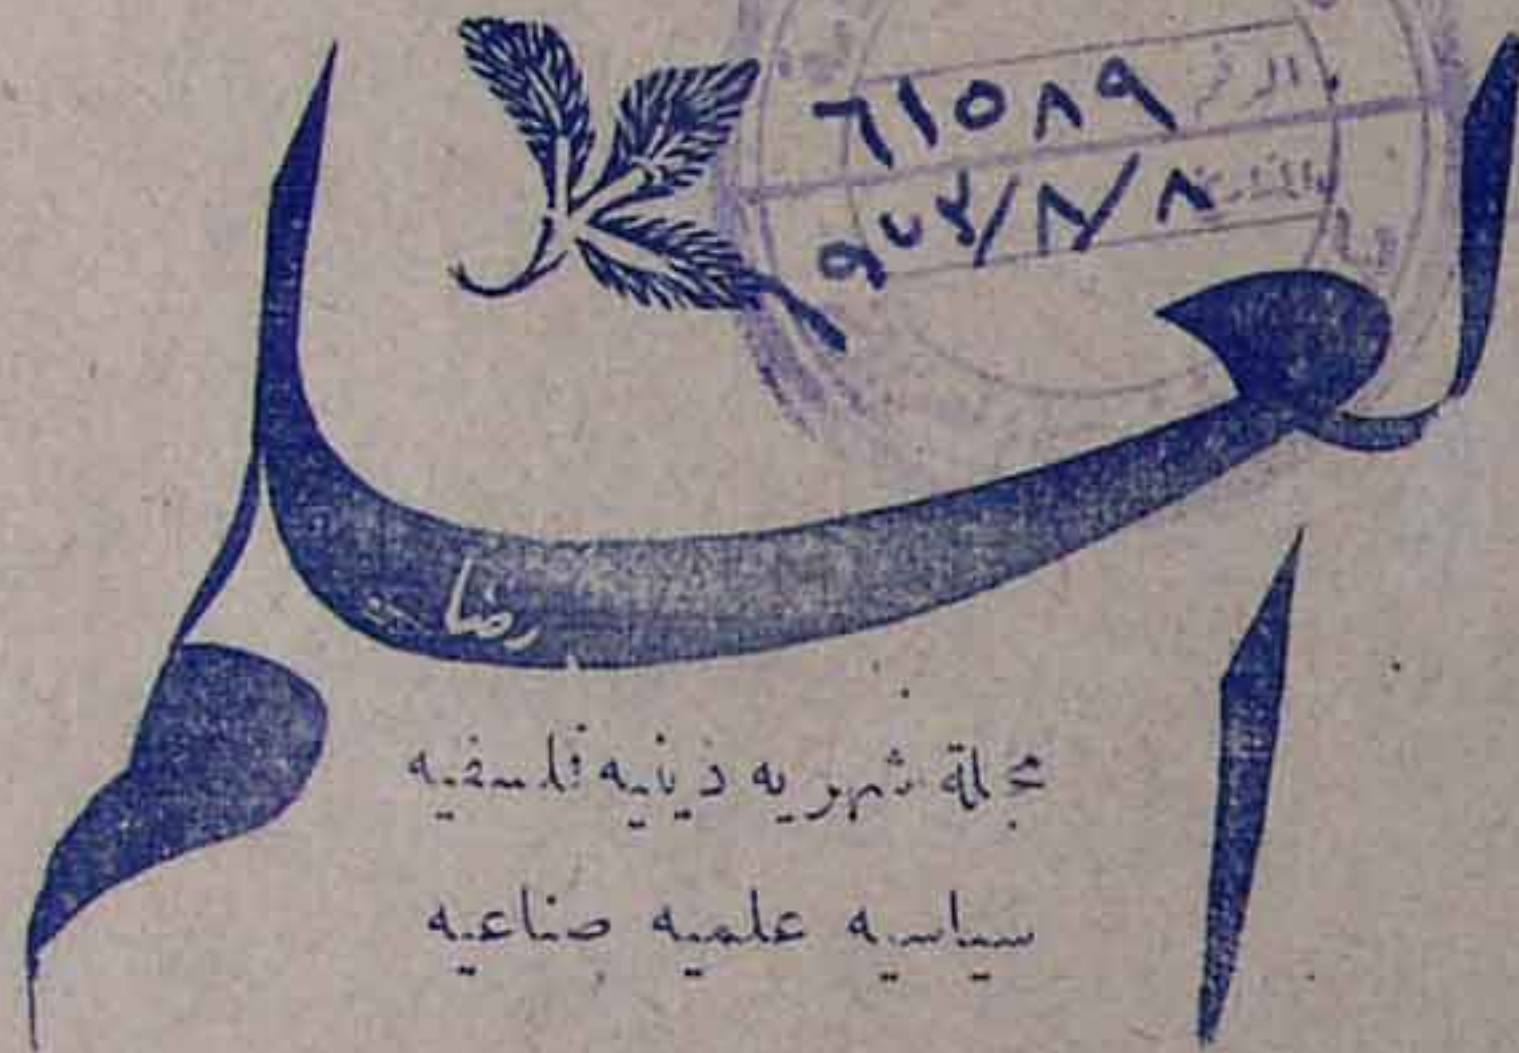 الرقم ٦١٥٨٩
التاريخ ٨/٨/٩٧٣
العلم
رضا
مجلة شهرية دينية فلسفية
سياسيه علميه صناعيه